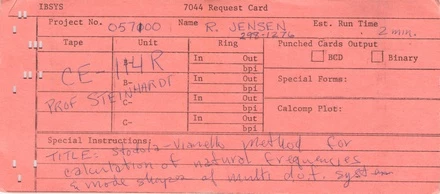 IBSYS 7044 Request Card
Project No. 057100 Name R. JENSEN Est. Run Time 2 min.
298-1276
Tape Unit Ring Punched Cards Output
CE-14R
In Out BCD Binary
bpi
PROF STEINHARDT
B- In Out Special Forms:
bpi
C- In Out Calcomp Plot:
bpi
C- In Out
bpi
Special Instructions:
TITLE: Stodola-Vianello method for
calculation of natural frequencies
& mode shapes of multi d.o.f. system